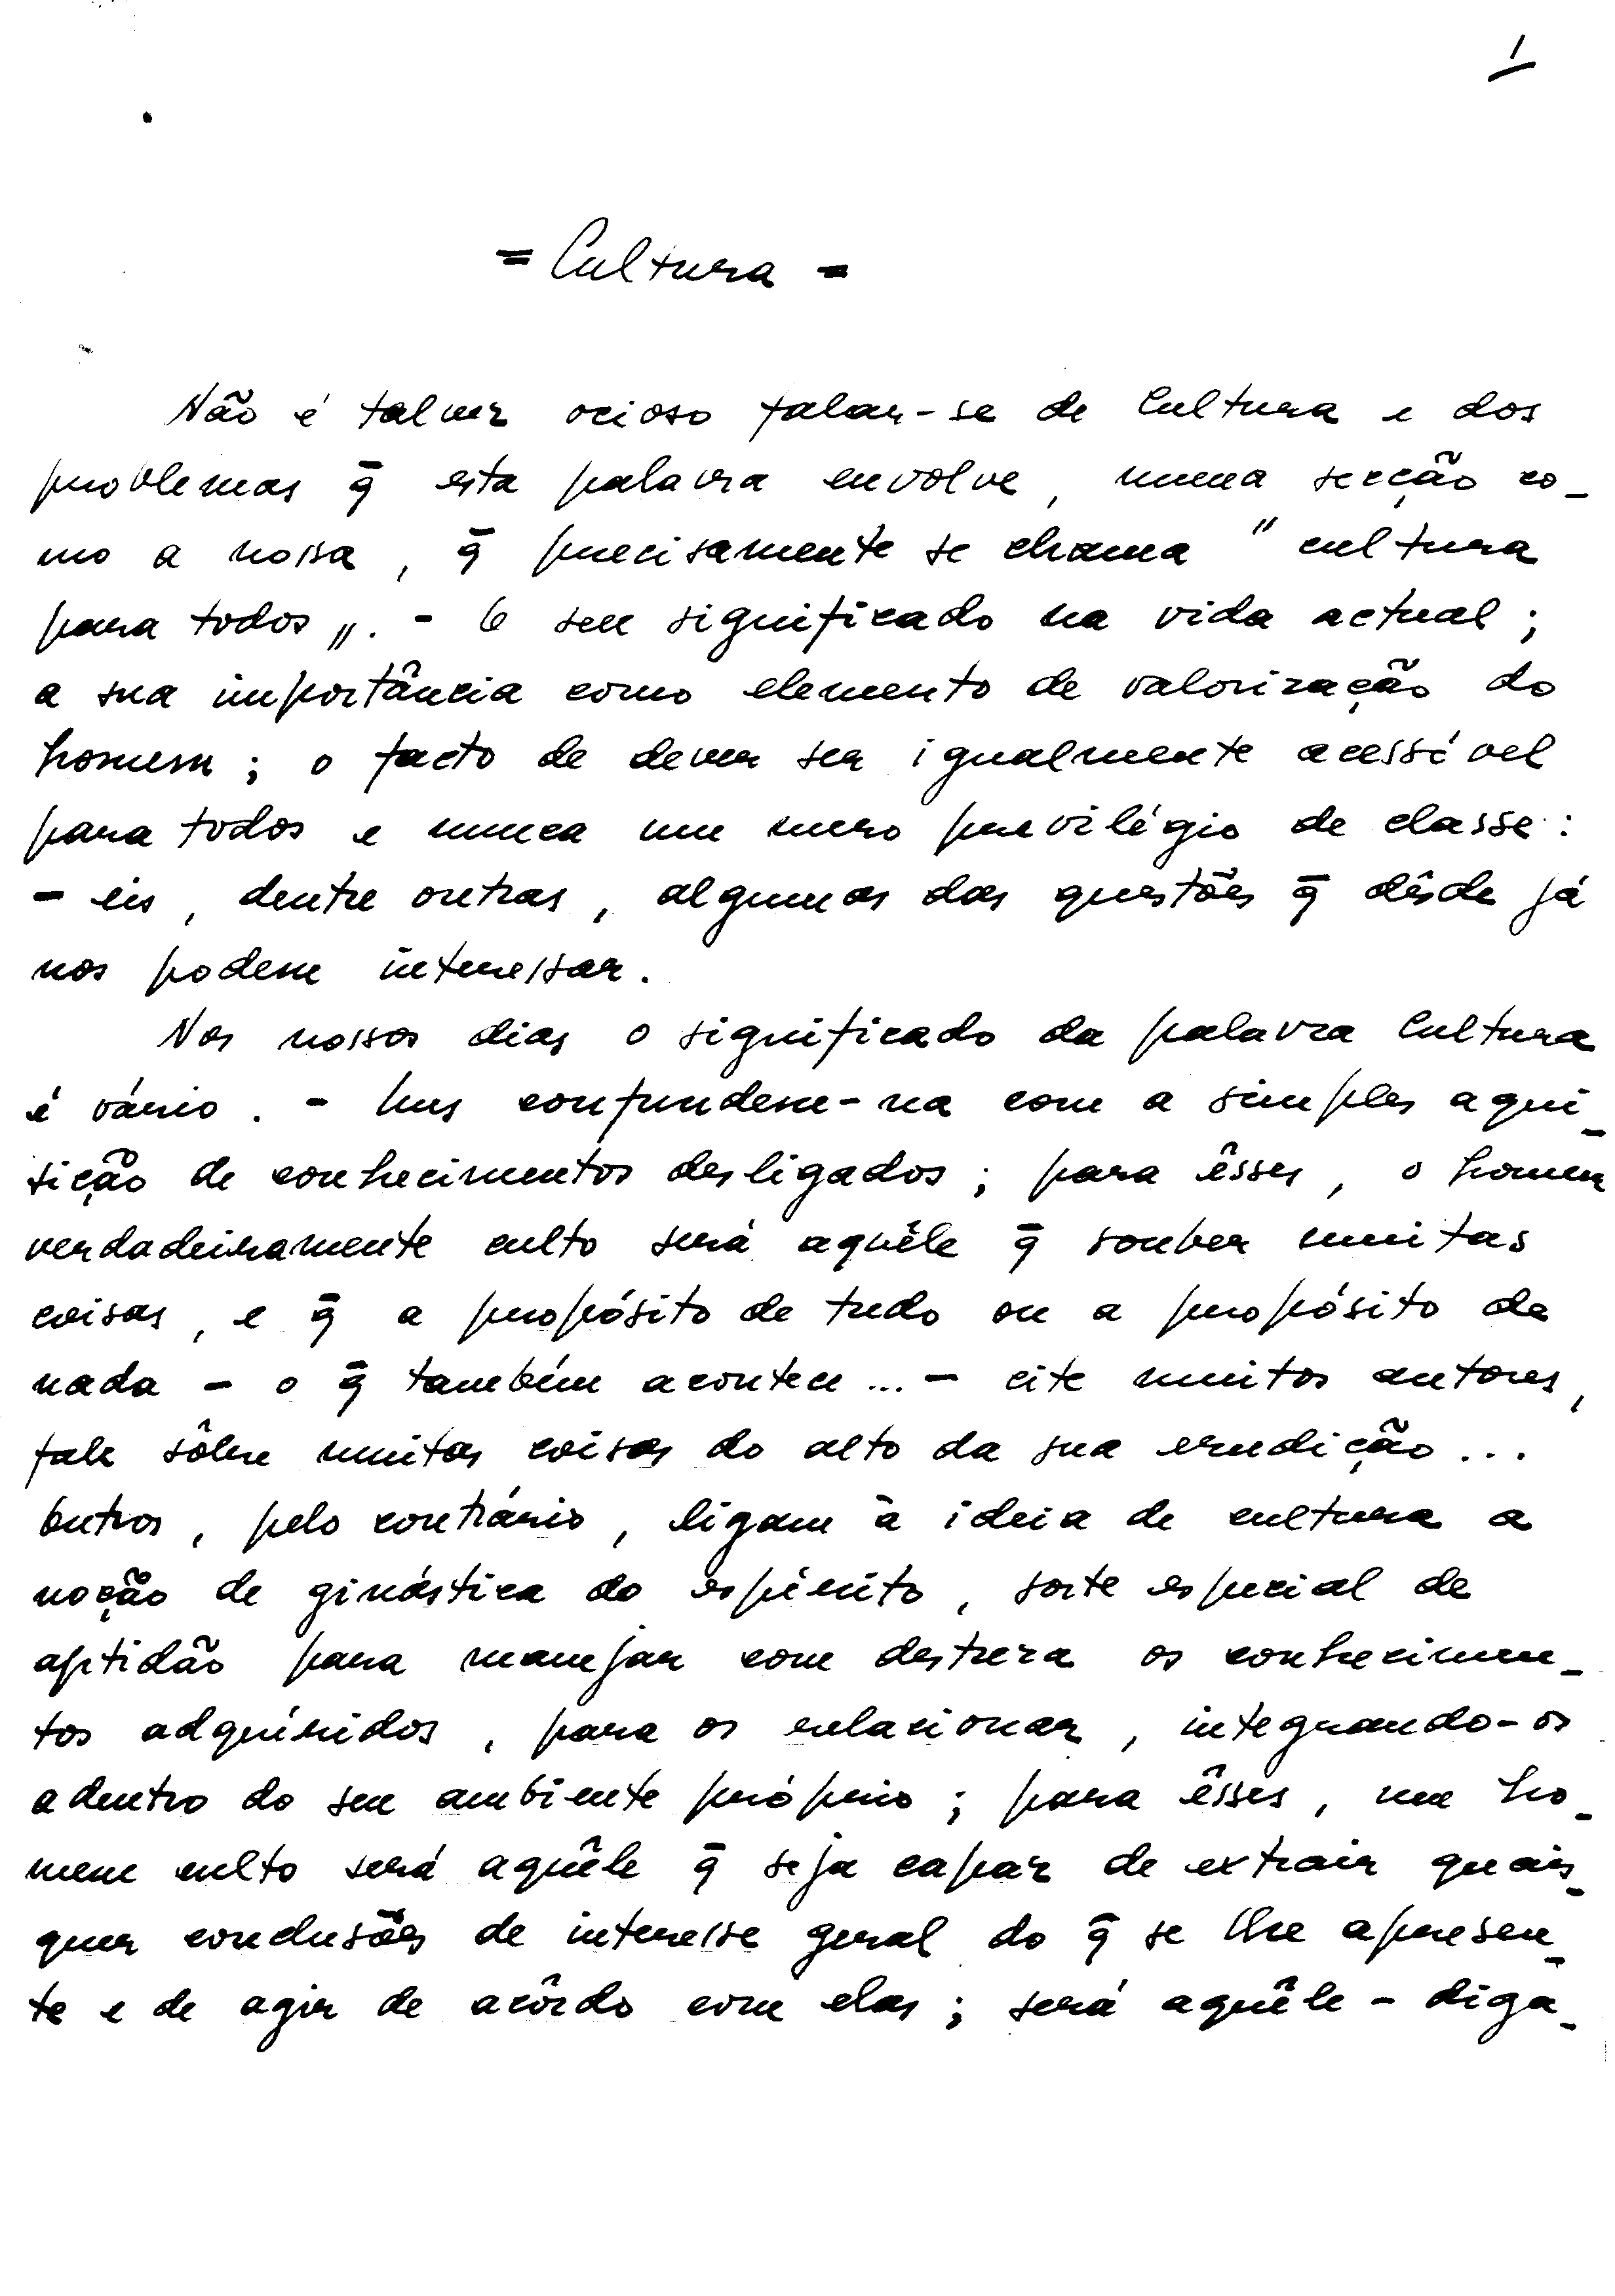 1
= Cultura =
Não é talvez ocioso falar-se de Cultura e dos
problemas q̄ esta palavra envolve, numa secção co_
mo a nossa, q̄ precisamente se chama "cultura
para todos„. - O seu significado na vida actual;
a sua importância como elemento de valorização do
homem; o facto de dever ser igualmente acessível
para todos e nunca um mero previlégio de classe:
- eis, dentre outras, algumas das questões q̄ dêsde já
nos podem interessar.
Nos nossos dias o significado da palavra Cultura
é vário. - Uns confundem-na com a simples aqui_
sição de conhecimentos desligados; para êsses, o homem
verdadeiramente culto será aquêle q̄ souber muitas
coisas, e q̄ a propósito de tudo ou a propósito de
nada - o q̄ também acontece ... - cite muitos autores,
fale sôbre muitas coisas do alto da sua erudição ...
Outros, pelo contrário, ligam à ideia de cultura a
noção de ginástica do espírito, sorte especial de
aptidão para manejar com destreza os conhecimen_
tos adquíridos, para os relacionar, integrando-os
adentro do seu ambiente próprio; para êsses, um ho_
mem culto será aquêle q̄ seja capaz de extrair quais_
quer conclusões de interesse geral do q̄ se lhe apresen_
te e de agir de acôrdo com elas; será aquêle - diga_